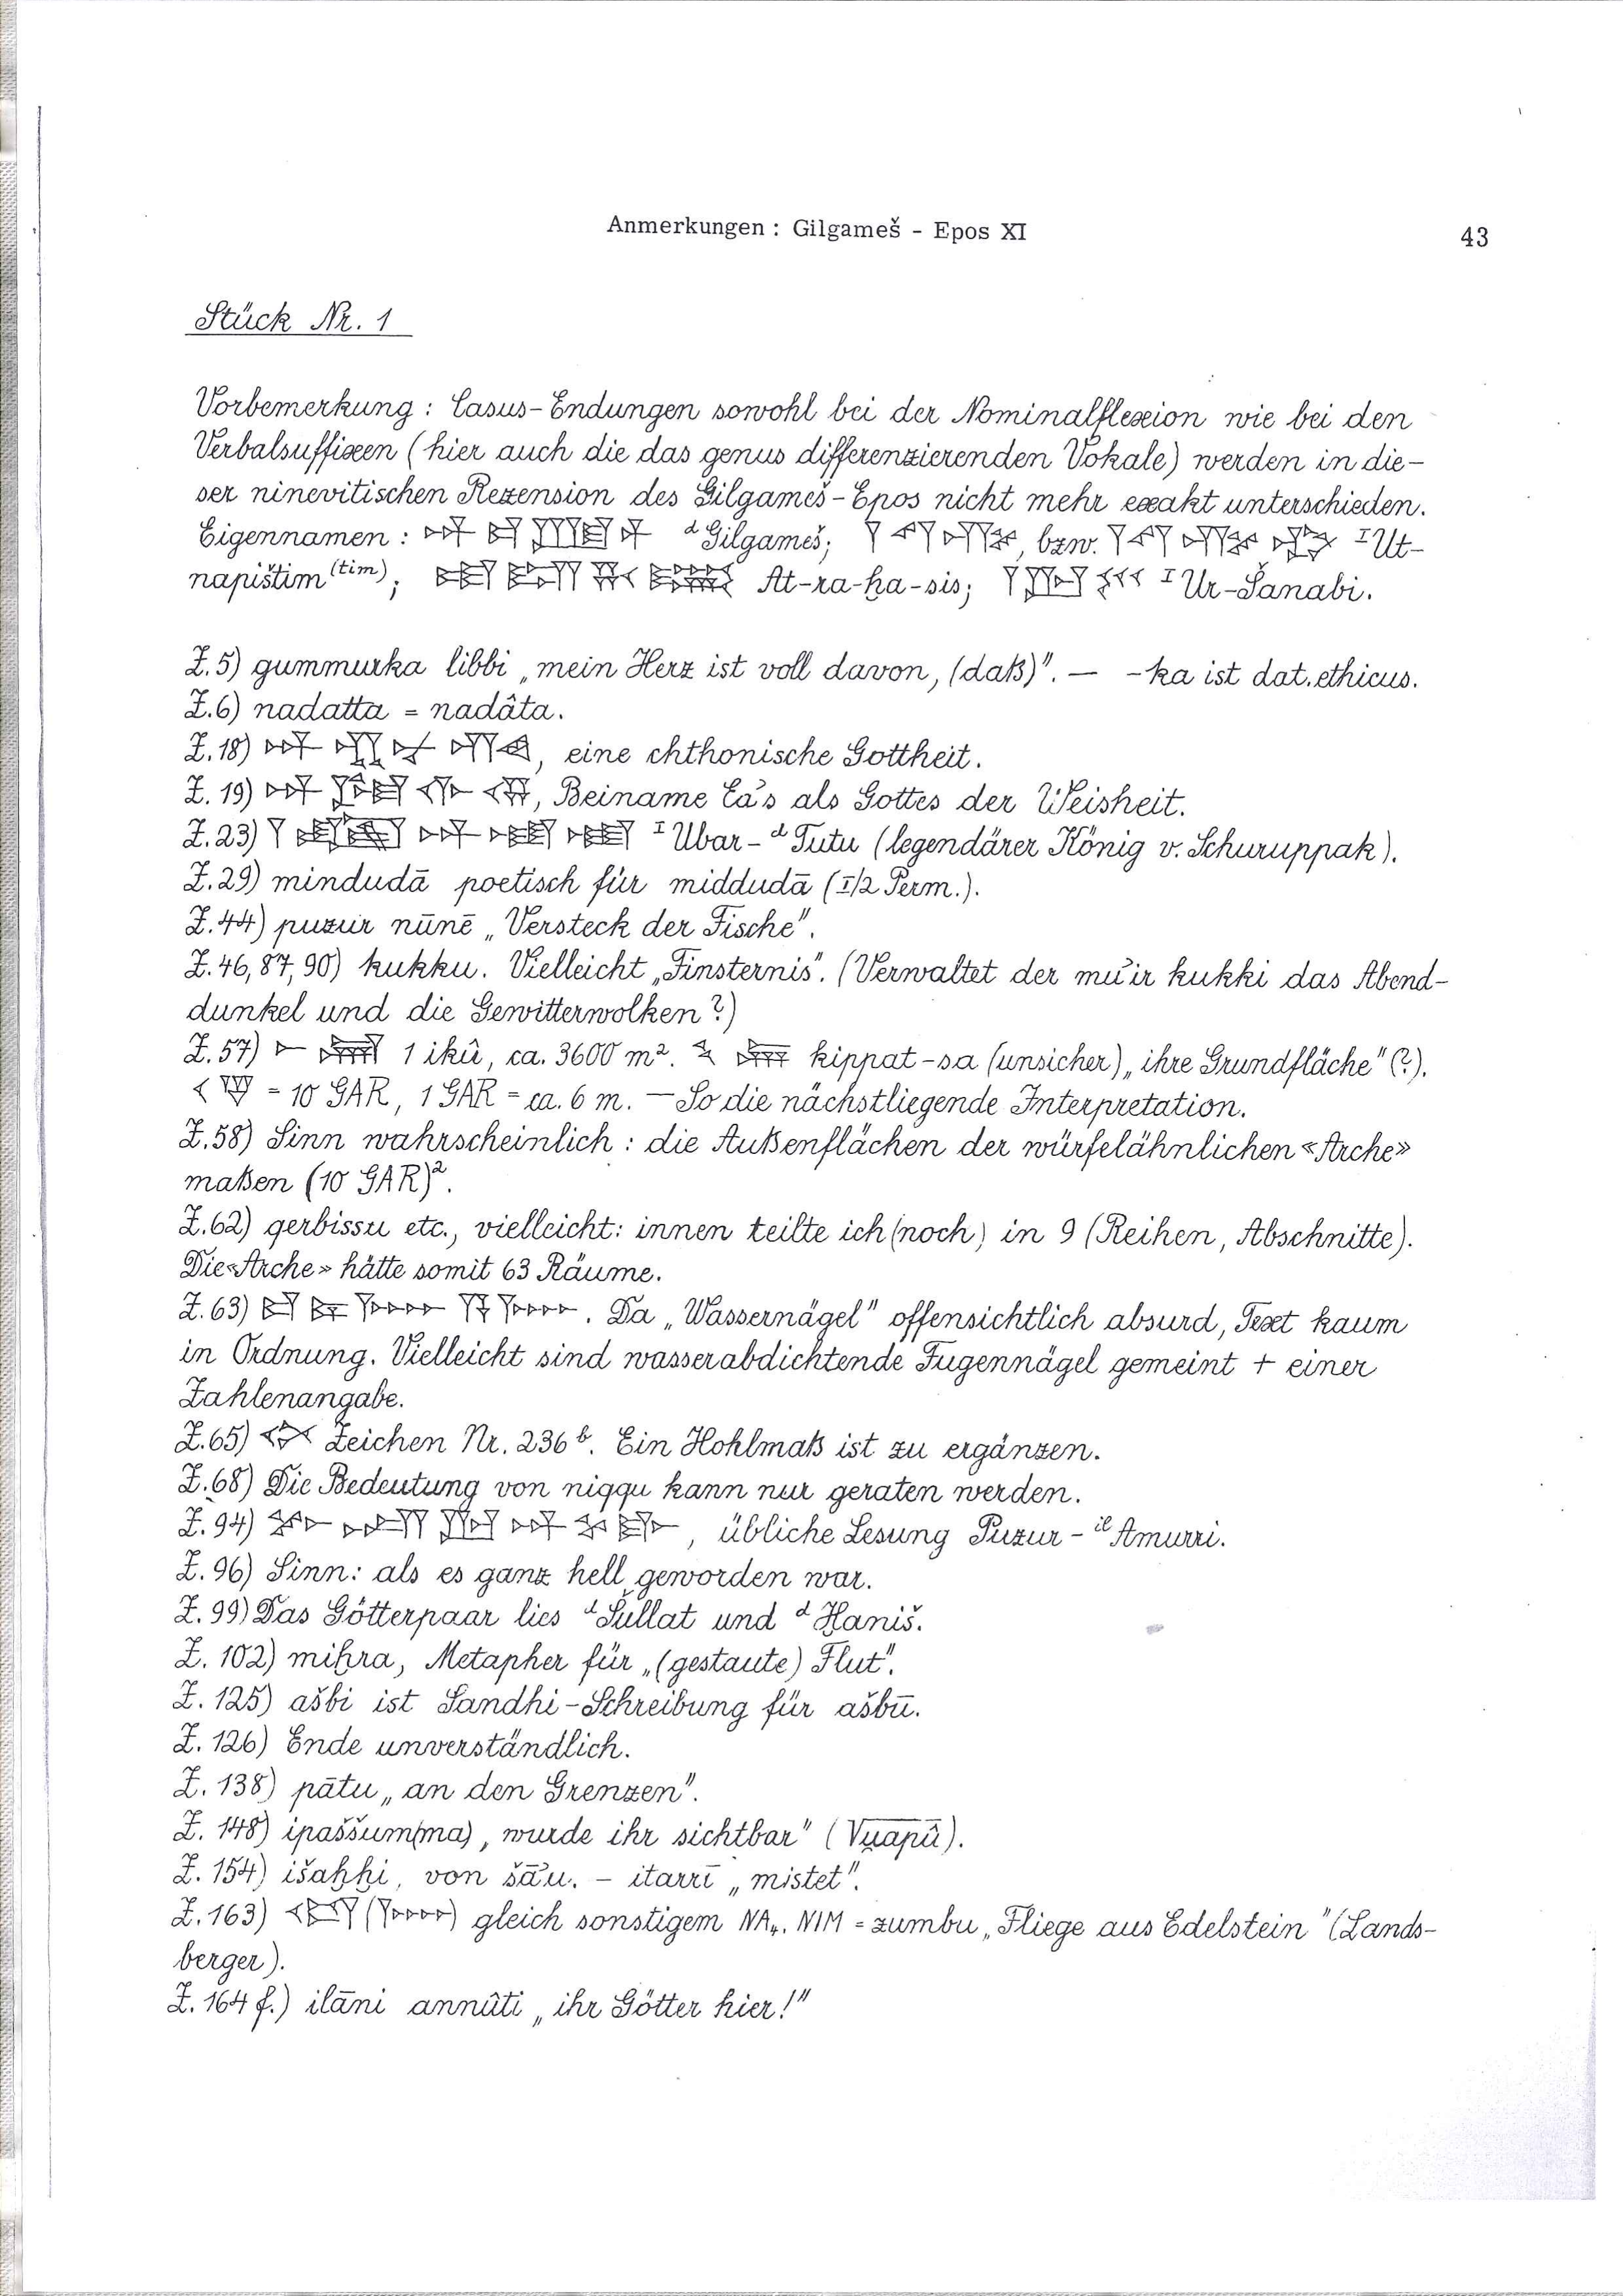 Anmerkungen : Gilgameš - Epos XI
43
Stück Nr. 1
Vorbemerkung : Casus-Endungen sowohl bei der Nominalflexion wie bei den
Verbalsuffixen (hier auch die das genus differenzierenden Vokale) werden in die-
ser ninevitischen Rezension des Gilgameš-Epos nicht mehr exakt unterschieden.
Eigennamen : 𒀭 𒄑 𒂆 𒈦 ᵈGilgameš; 𒁹 𒌓 𒍣, bzw. 𒁹 𒌓 𒍣 𒁴 ᴵUt-
napištim⁽ᵗⁱᵐ⁾; 𒀜 𒊏 𒄩 𒋀 At-ra-ḫa-sis; 𒁹 𒌨 𒐏 ᴵUr-Šanabi.
Z.5) gummurka libbi „mein Herz ist voll davon, (daß)". — -ka ist dat.ethicus.
Z.6) nadatta = nadâta.
Z.18) 𒀭 𒂗 𒉡 𒄀, eine chthonische Gottheit.
Z.19) 𒀭 𒎏 𒅆 𒆬, Beiname Ea's als Gottes der Weisheit.
Z.23) 𒁹 𒀭 𒌅 𒌅 ᴵUbar-ᵈTutu (legendärer König v. Schuruppak).
Z.29) mindudā poetisch für middudā (I/2 Perm.).
Z.44) puzur nūnē „Versteck der Fische".
Z.46,87,90) kukku. Vielleicht „Finsternis". (Verwaltet der mu'ir kukki das Abend-
dunkel und die Gewitterwolken?)
Z.57) 𒀸 𒃷 1 ikû, ca. 3600 m². kippat-sa (unsicher) „ihre Grundfläche" (?).
𒌋 𒃻 = 10 GAR, 1 GAR = ca. 6 m. — So die nächstliegende Interpretation.
Z.58) Sinn wahrscheinlich : die Außenflächen der würfelähnlichen «Arche»
maßen (10 GAR)².
Z.62) qerbissu etc., vielleicht: innen teilte ich (noch) in 9 (Reihen, Abschnitte).
Die «Arche» hätte somit 63 Räume.
Z.63) 𒄑 𒆕 𒎌 𒀀 𒎌. Da „Wassernägel" offensichtlich absurd, Text kaum
in Ordnung. Vielleicht sind wasserabdichtende Fugennägel gemeint + einer
Zahlenangabe.
Z.65) Zeichen Nr. 236ᵇ. Ein Hohlmaß ist zu ergänzen.
Z.68) Die Bedeutung von niqqu kann nur geraten werden.
Z.94) 𒀭 𒆳 𒃲, übliche Lesung Puzur-ⁱˡAmurri.
Z.96) Sinn: als es ganz hell geworden war.
Z.99) Das Götterpaar lies ᵈŠullat und ᵈḪaniš.
Z.102) miḫra, Metapher für „(gestaute) Flut".
Z.125) ašbi ist Sandhi-Schreibung für ašbū.
Z.126) Ende unverständlich.
Z.138) pātu „an den Grenzen".
Z.148) ipaššum(ma) „wurde ihr sichtbar" (√u̯apû).
Z.154) išaḫḫi, von šā'u. – itarrī „mistet".
Z.163) 𒉏 (𒎌) gleich sonstigem NA₄. NIM = zumbu „Fliege aus Edelstein" (Lands-
berger).
Z.164 f.) ilāni annûti „ihr Götter hier!"